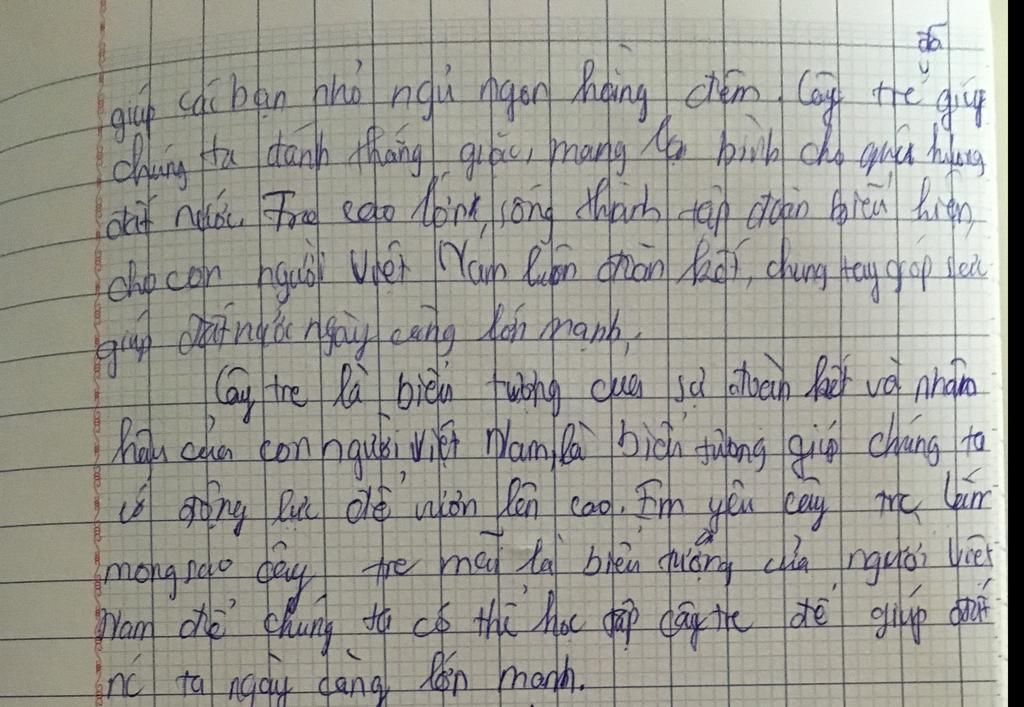 đã
giúp các bạn nhỏ ngủ ngon hàng đêm. Cây tre giúp
chúng ta đánh thắng giặc, mang lại bình cho quê hương
đất nước. Tre cao lớn, sống thành tập đoàn biểu hiện
cho con người Việt Nam luôn đoàn kết, chung tay góp sức
giúp đất nước ngày càng lớn mạnh,
Cây tre là biểu tượng của sự đoàn kết và nhân
hậu của con người Việt Nam, là biểu tượng giúp chúng ta
có động lực để vươn lên cao. Em yêu cây tre lắm
mong sao cây tre mãi là biểu tượng của người Việt
Nam để chúng ta có thể học tập cây tre để giúp đất
nc ta ngày càng lớn mạnh.